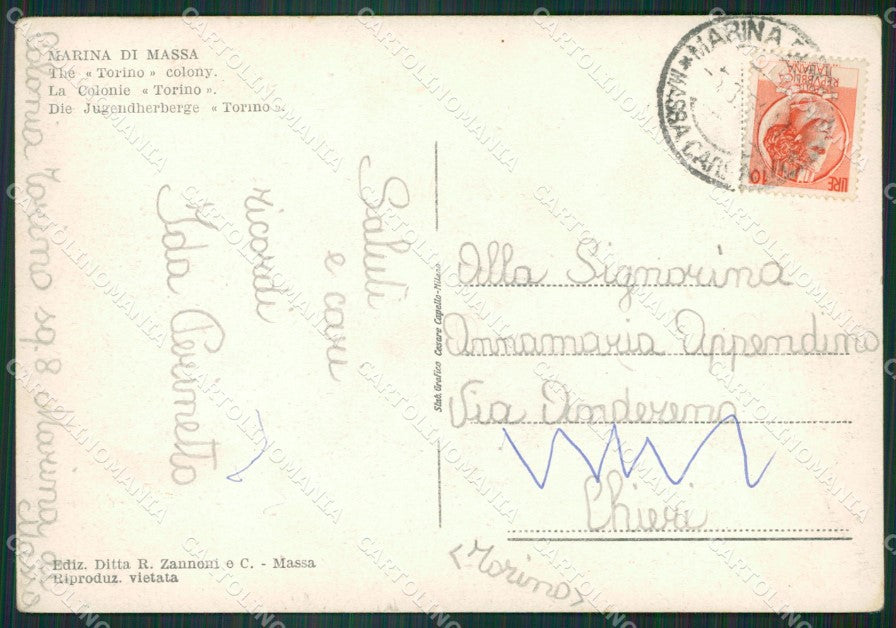 MARINA DI MASSA
The « Torino » colony.
La Colonie « Torino ».
Die Jugendherberge « Torino ».
Saluti
e cari
ricordi
Ida
Colonia Torino sq. 8 Marina di
Ediz. Ditta R. Zannoni e C. - Massa
Riproduz. vietata
Stab. Grafico Cesare Capello-Milano
MARINA
MASSA
REPVBBLICA
ITALIANA
LIRE 10
Alla Signorina
Annamaria Appendino
Via Andezeno
Chieri
(Torino)
CARTOLINOMANIA